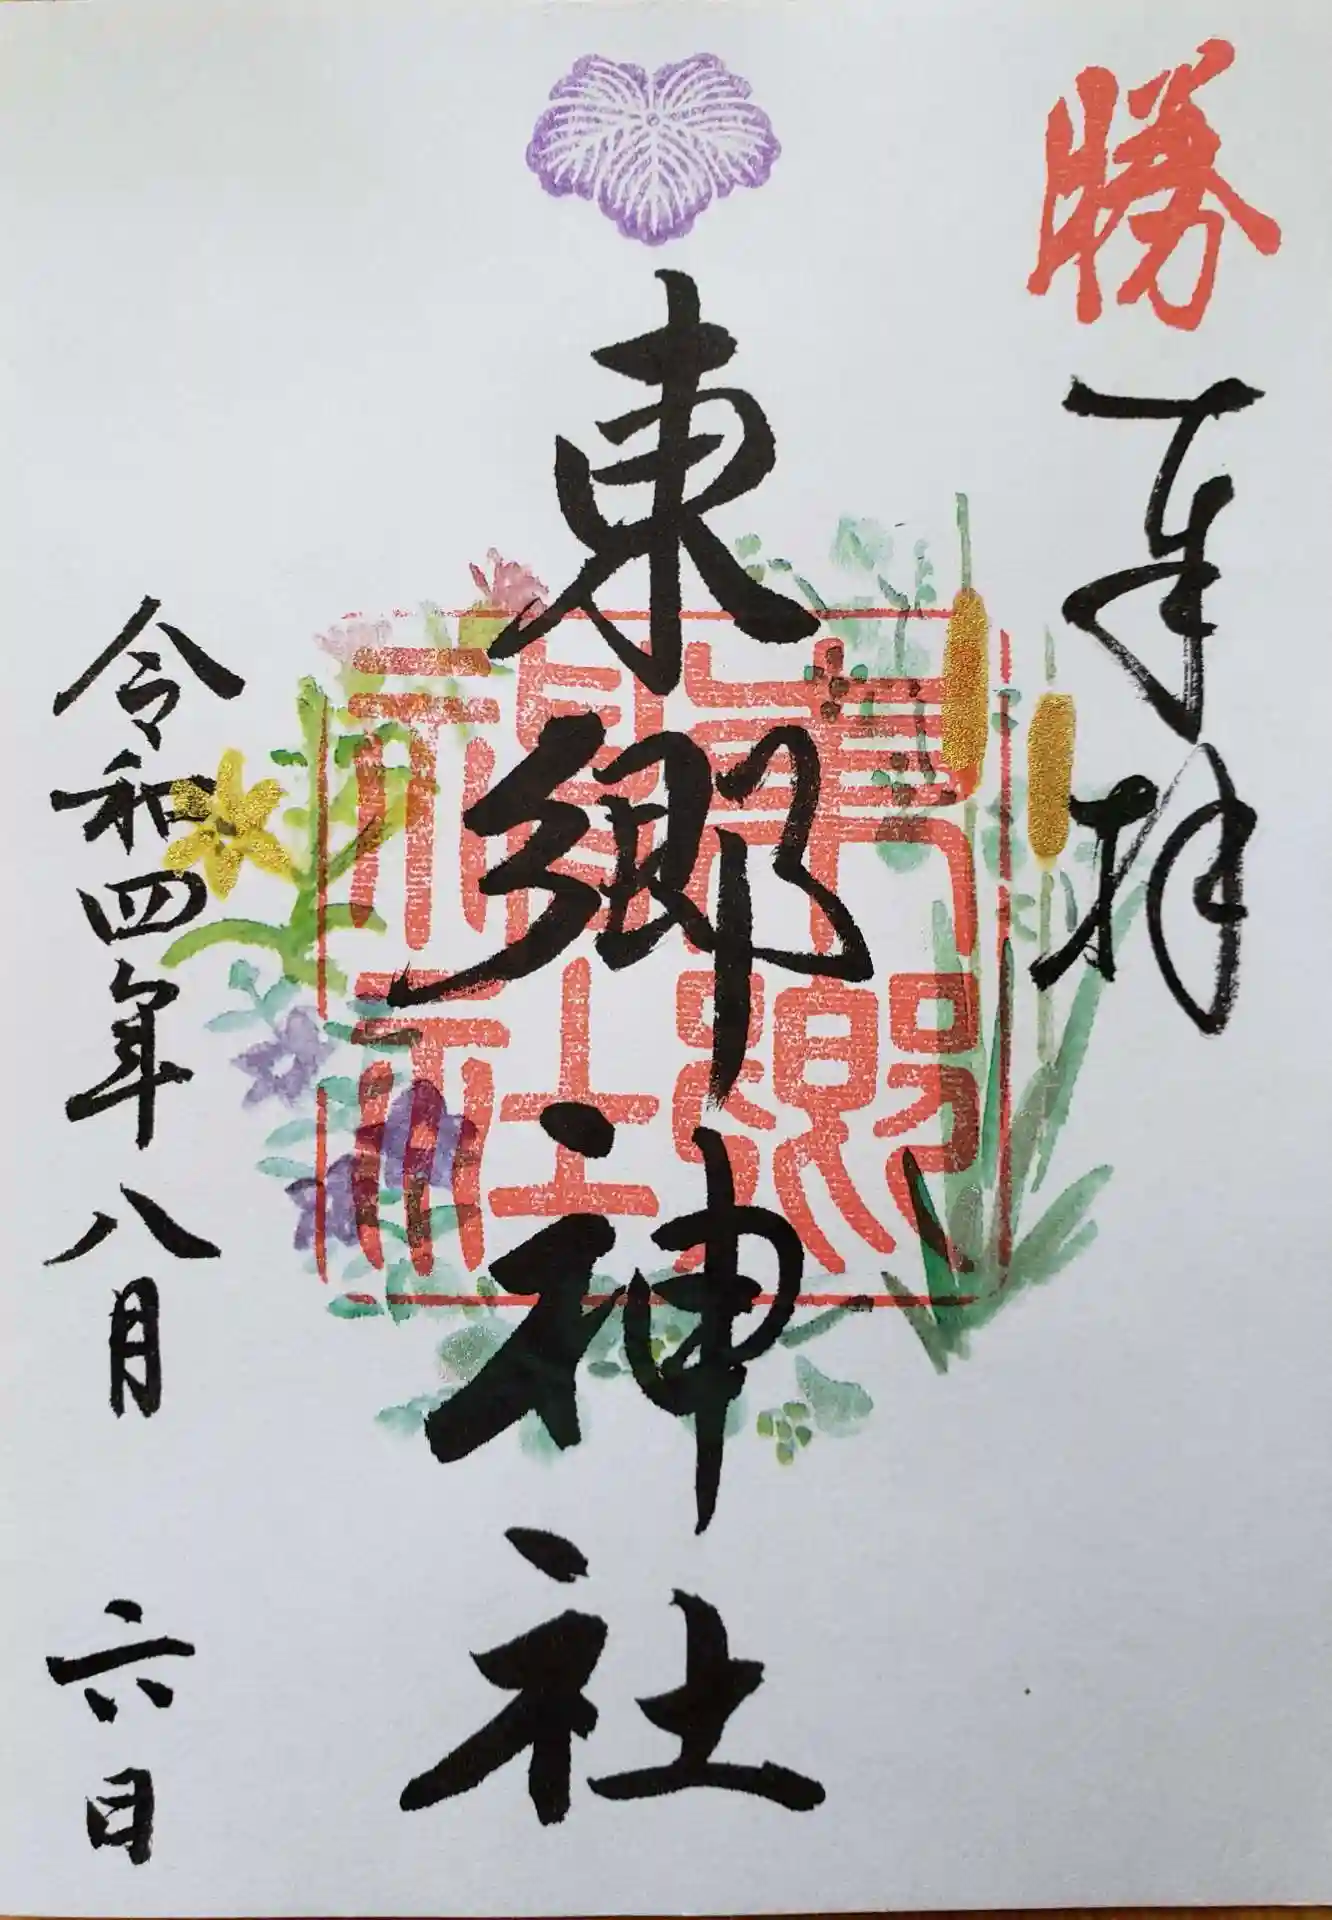 勝
奉拝
東郷神社
東郷神社
令和四年八月六日